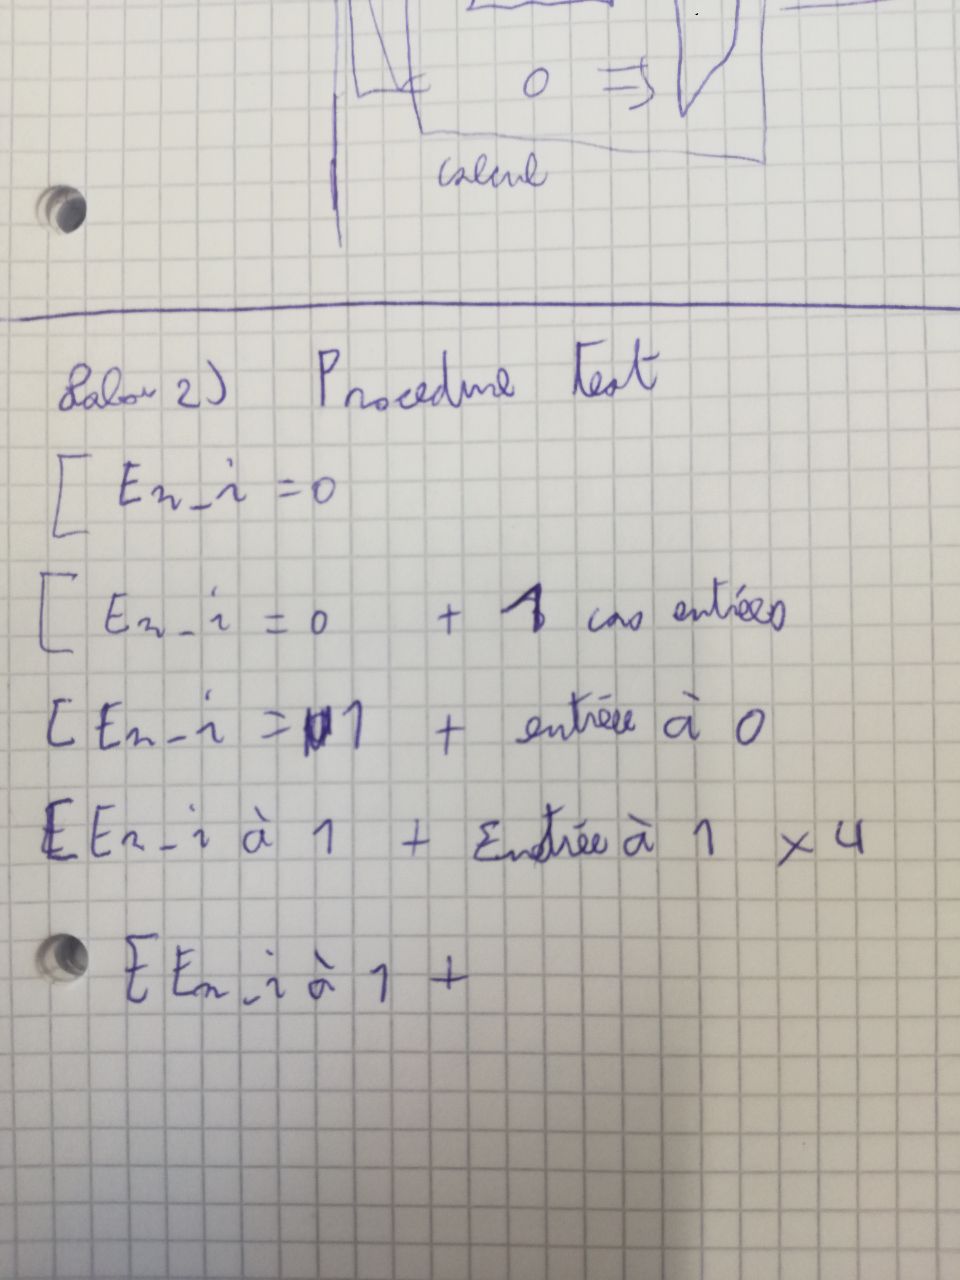 0 =>
calcul
Labo 2) Procedure Test
[ En_i = 0
[ En_i = 0 + 1 cas entrées
[ En_i = 1 + entrée à 0
[ En_i à 1 + Entrée à 1 x 4
[ En_i à 1 +